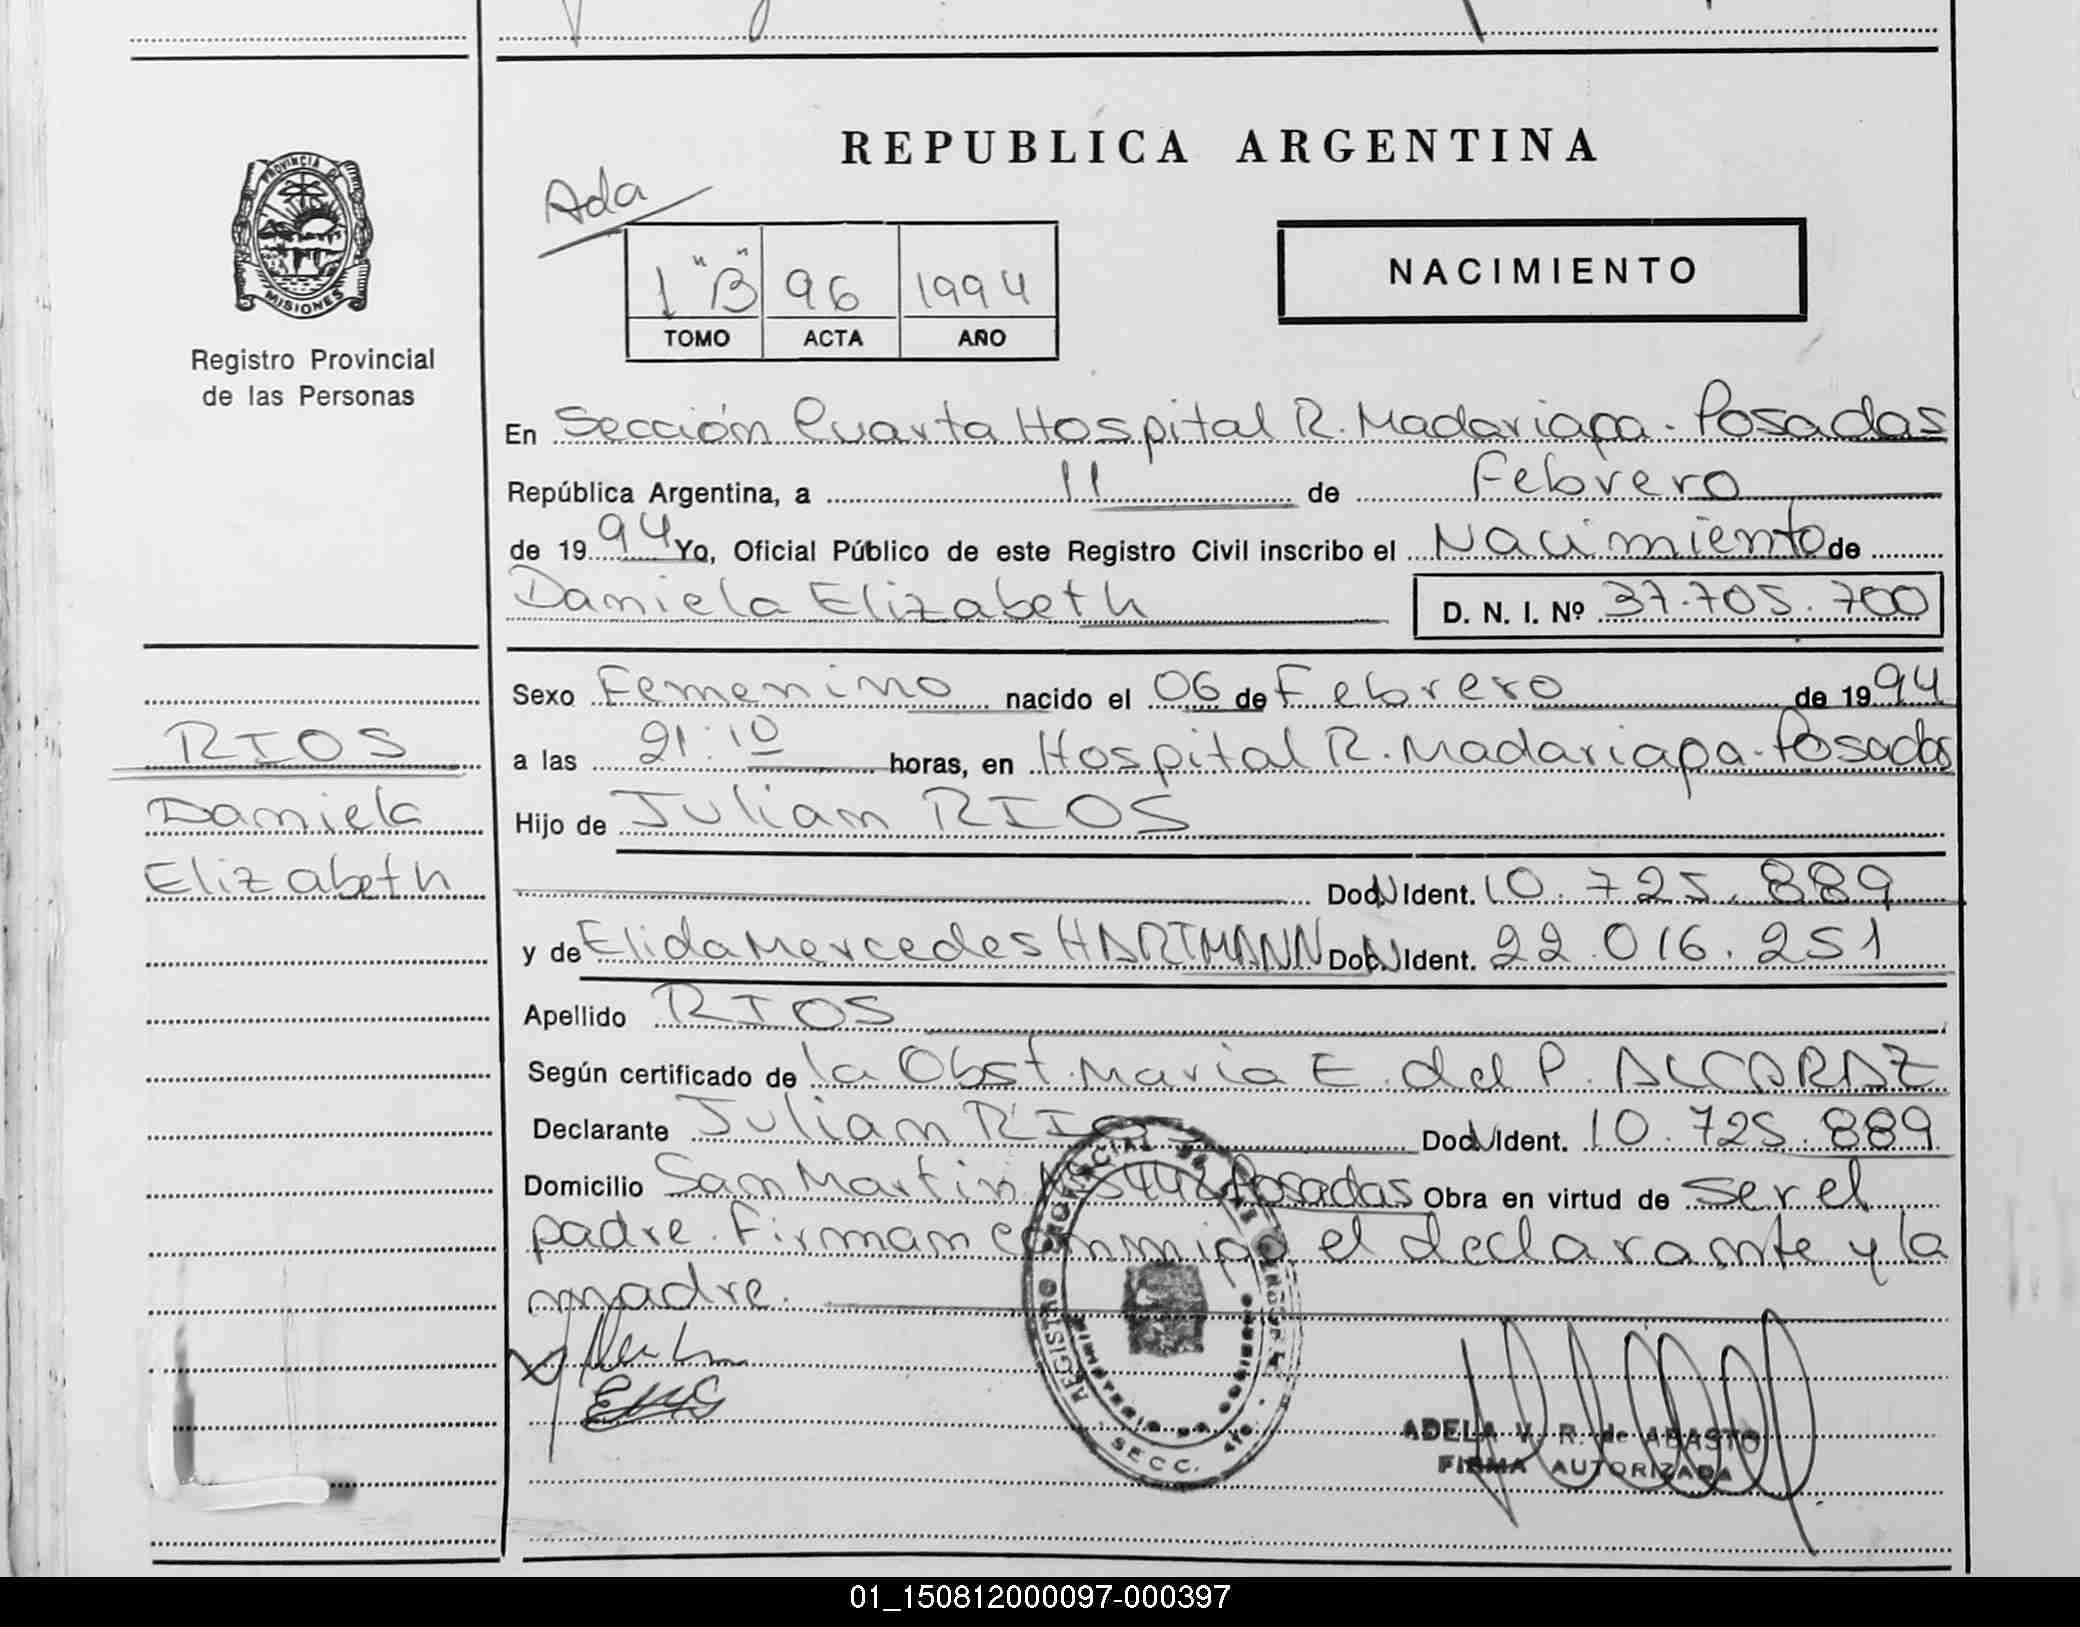 REPUBLICA ARGENTINA
Ada
PROVINCIA DE
MISIONES
Registro Provincial
de las Personas
1 "B" 96 1994
TOMO ACTA AÑO
NACIMIENTO
En Sección Cuarta Hospital R. Madariaga - Posadas
República Argentina, a 11 de Febrero
de 1994 Yo, Oficial Público de este Registro Civil inscribo el Nacimiento de
Daniela Elizabeth D. N. I. Nº 37.705.700
Sexo Femenino nacido el 06 de Febrero de 1994
RIOS
a las 21:10 horas, en Hospital R. Madariaga - Posadas
Daniela
Hijo de Julian RIOS
Elizabeth
Doc. N Ident. 10.725.889
y de Elida Mercedes HARTMANN Doc. N Ident. 22.016.251
Apellido RIOS
Según certificado de la Obst. Maria E. del P. ALCARAZ
Declarante Julian RIOS Doc. N Ident. 10.725.889
Domicilio San Martin Posadas Obra en virtud de ser el
padre. Firman conmigo el declarante y la
madre.
REGISTRO PROVINCIAL DE LAS PERSONAS
MINISTERIO DE GOBIERNO
SECC. 4ta.
ADELA V. R. de ABASTO
FIRMA AUTORIZADA
01_150812000097-000397